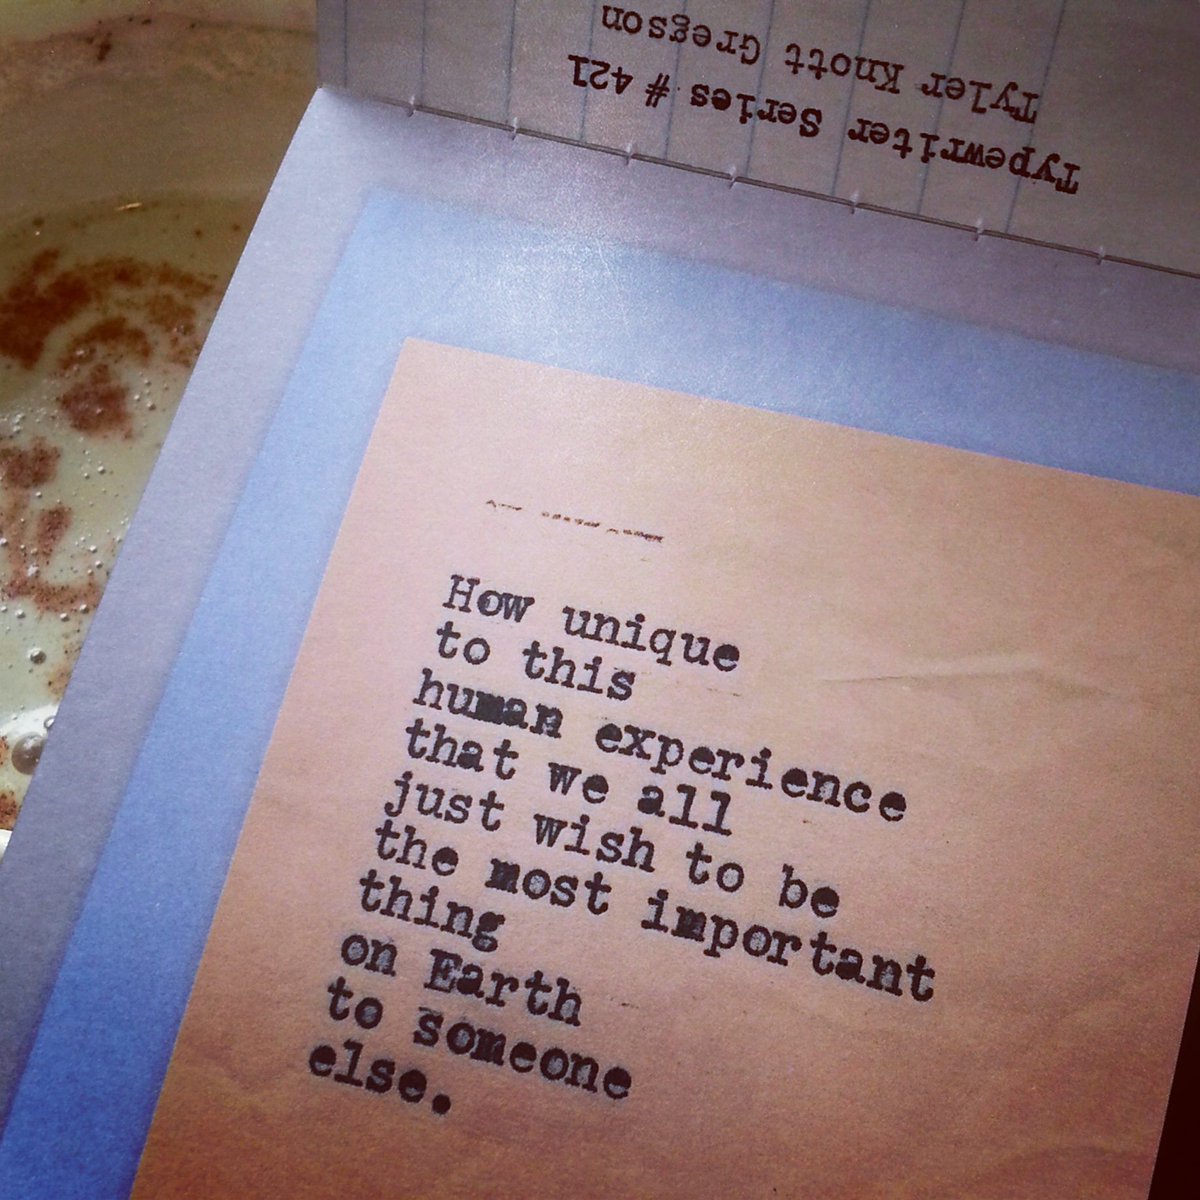 Typewriter Series # 421
Tyler Knott Gregson
How unique
to this
human experience
that we all
just wish to be
the most important
thing
on Earth
to someone
else.